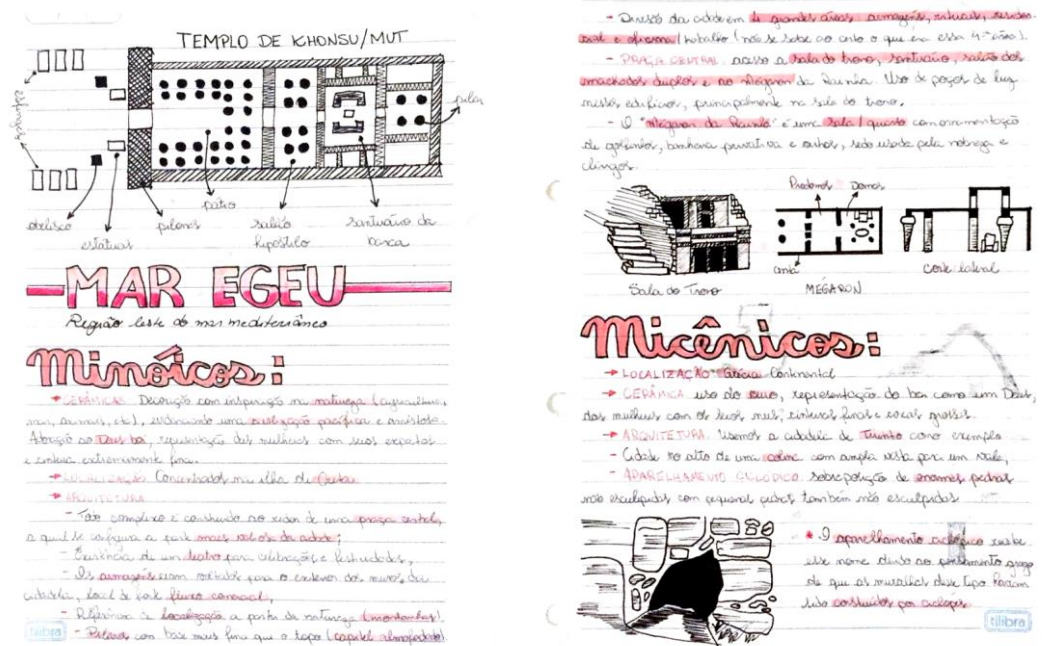 TEMPLO DE KHONSU/MUT
esfinges
pilar
pátio
obelisco
estátuas
pilones
salão
hipóstilo
santuário da
barca
MAR EGEU
Região leste do mar mediterrâneo
Minóicos:
→ CERÂMICAS Decoração com inspiração na natureza (agricultura,
mar, animais, etc), evidenciando uma civilização pacífica e
Adoração ao Deus boi, representação das mulheres com seios expostos
e cintura extremamente fina.
→ LOCALIZAÇÃO Concentrados na ilha de Creta
→ ARQUITETURA
- Todo complexo é construído ao redor de uma praça central,
a qual se configura a parte mais da cidade;
- Existência de um teatro para celebrações e festividades,
- Os armazéns eram voltados para o exterior dos muros da
cidadela, local de forte fluxo comercial,
- Referência de localização a partir da natureza (montanhas).
- Pilares com base mais fina que o topo (capitel almofadado).
tilibra
- Divisão da cidade em 4 grandes áreas: armazéns, rituais, residen-
cial e oficina/trabalho (não se sabe ao certo o que era essa 4ª área).
- PRAÇA CENTRAL acesso a sala do trono, santuário, salão dos
machados duplos e ao Mégaron da Rainha. Uso de poços de luz
nestes edifícios, principalmente na sala do trono.
- O "Mégaron da Rainha" é uma sala/quarto com ornamentação
de golfinhos, banheira privativa e, sendo usada pela nobreza e
clérigos.
Prodomos
Domos
anta
Sala do Trono
MEGARON
Corte lateral
Micênicos:
→ LOCALIZAÇÃO Grécia Continental
→ CERÂMICA uso do ouro, representação do boi como um Deus,
das mulheres com os seios nus, cinturas finas e coxas grossas.
→ ARQUITETURA. Usamos a cidadela de Tirinto como exemplo
- Cidade no alto de uma colina com ampla vista para um vale,
- APARELHAMENTO CICLÓPICO sobreposição de enormes pedras
não esculpidas com pequenas pedras também não esculpidas
* O aparelhamento ciclópico recebe
esse nome devido ao pensamento grego
de que as muralhas desse tipo haviam
sido construídas por ciclopes
tilibra